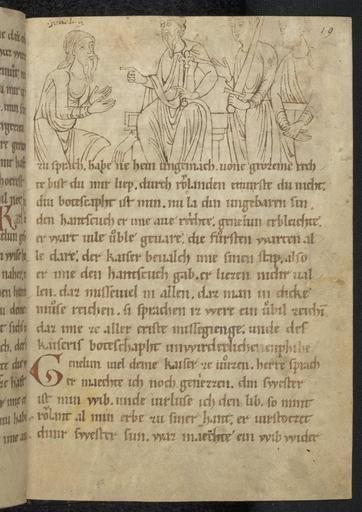 genelun
19
zu sprach. habe ne hein ungemach. uone grozeme rech
te bist du mir liep. durch rolanden enwirste du nicht.
diu botescapht ist min. nu la din ungebaren sin.
den hantscuch er ime aue rachte. genelun erbleichte.
er wart uile uble geuare. die fursten warten al
le dare. der kaiser beualch ime sinen stap. also
er ime den hantscuch gab. er liezen nider ual
len. daz misseuiel in allen. daz man in dicke
muose reichen. si sprachen iz were ein ubil zeichin
daz ime ze aller eriste missegienge. unde des
kaiseris botescapht unwirderlichen enphihe
Genelun uiel deme kaiser ze uuzen. herre sprach
er maechte ich noch geniezzen. din swester
ist min wib. unde uirluse ich den lib. so nimt
rolant al min erbe zu siner hant. er uirstozet
diner swester sun. waz maechte ein wib wider